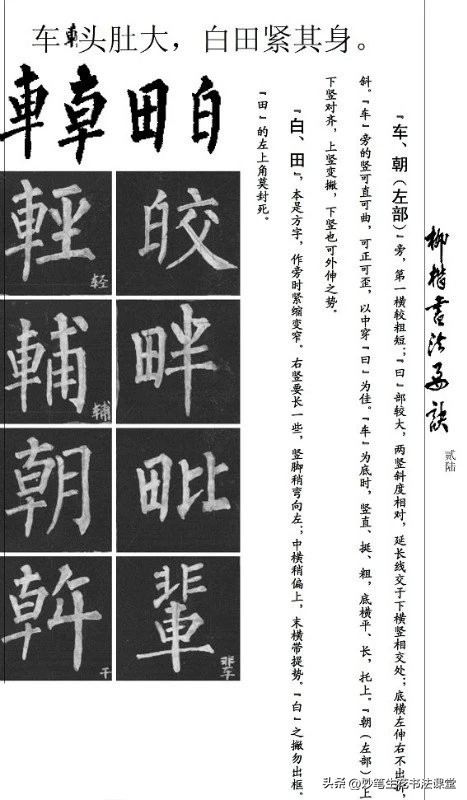 车头肚大，白田紧其身。
柳楷書法要訣
贰陆
『车、朝（左部）』旁，第一横较粗短；『日』部较大，两竖斜度相对，延长线交于下横竖相交处；底横左伸右不出
斜。『车』旁的竖可直可曲，可正可歪，以中穿『日』为佳。『车』为底时，竖直、挺、粗，底横平、长，托上。『朝（左部）』上
下竖对齐，上竖变撇，下竖也可外伸之势。
『白、田』，本是方字，作旁时紧缩变窄。右竖要长一些，竖脚稍弯向左；中横稍偏上，末横带提势。『白』之撇勿出框。
『田』的左上角莫封死。
車 𠦝 田 白
輕 轻 皎
輔 辅 畔
朝 毗
幹 干 輩 辈
头条 @妙笔生花书法课堂